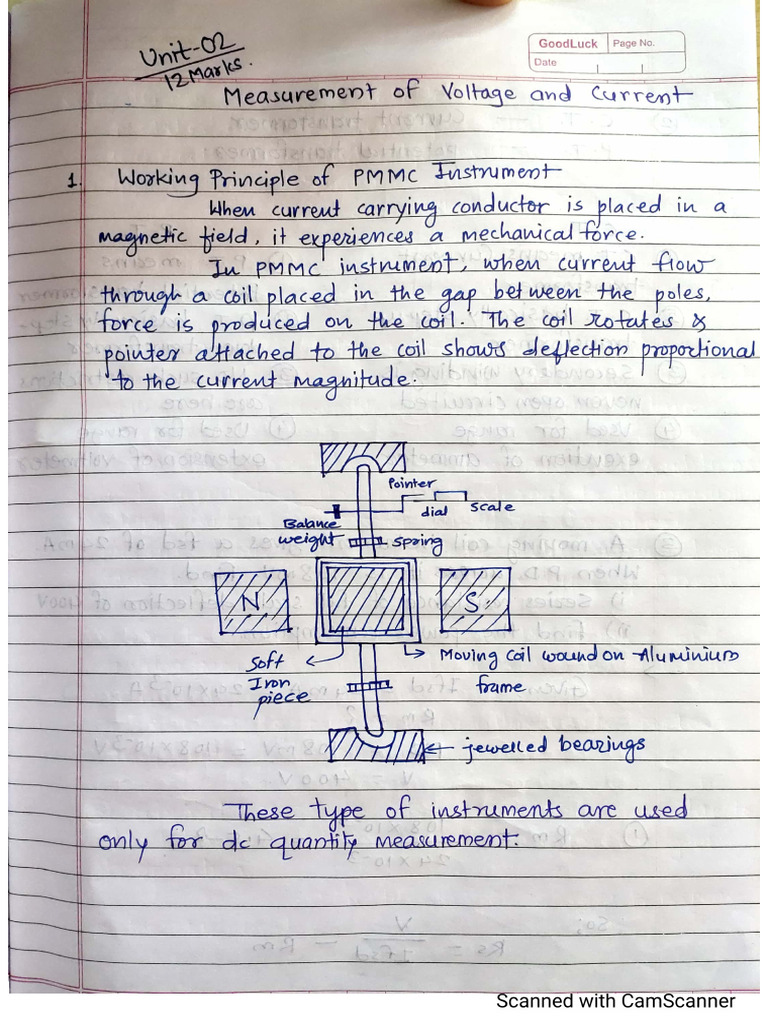 Unit-02
12 Marks.
GoodLuck Page No.
Date
Measurement of Voltage and Current
1. Working Principle of PMMC Instrument
When current carrying conductor is placed in a
magnetic field, it experiences a mechanical force.
In PMMC instrument, when current flow
through a coil placed in the gap between the poles,
force is produced on the coil. The coil rotates &
pointer attached to the coil shows deflection proportional
to the current magnitude.
Pointer
dial scale
Balance
weight spring
N S
soft Moving coil wound on Aluminium
Iron frame
piece
jewelled bearings
These type of instruments are used
only for dc quantity measurement.
Scanned with CamScanner